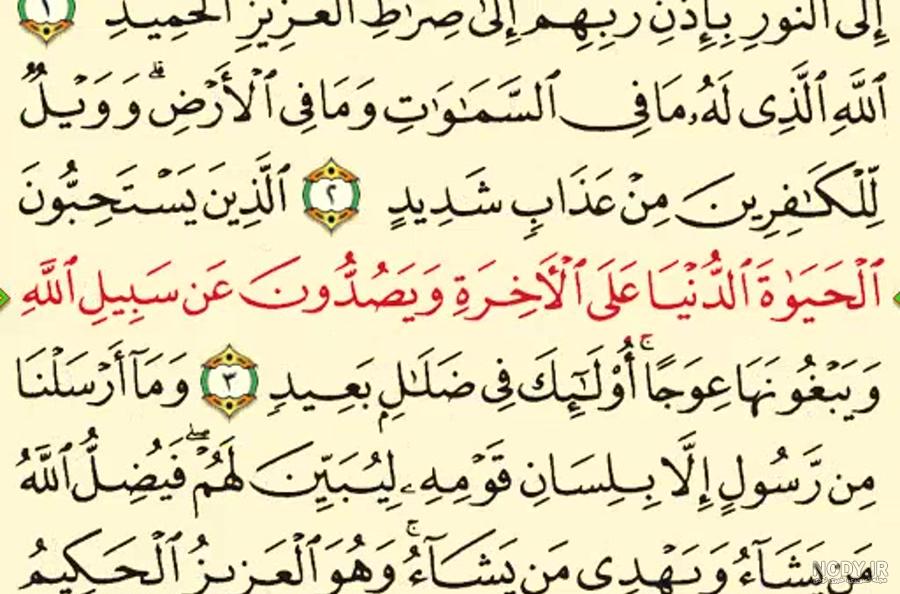 إِلَى ٱلنُّورِ بِإِذْنِ رَبِّهِمْ إِلَىٰ صِرَٰطِ ٱلْعَزِيزِ ٱلْحَمِيدِ ١
ٱللَّهِ ٱلَّذِى لَهُۥ مَا فِى ٱلسَّمَٰوَٰتِ وَمَا فِى ٱلْأَرْضِ ۗ وَوَيْلٌ
لِّلْكَٰفِرِينَ مِنْ عَذَابٍ شَدِيدٍ ٢ ٱلَّذِينَ يَسْتَحِبُّونَ
ٱلْحَيَوٰةَ ٱلدُّنْيَا عَلَى ٱلْأَخِرَةِ وَيَصُدُّونَ عَن سَبِيلِ ٱللَّهِ
وَيَبْغُونَهَا عِوَجًا ۚ أُو۟لَٰٓئِكَ فِى ضَلَٰلٍۭ بَعِيدٍ ٣ وَمَآ أَرْسَلْنَا
مِن رَّسُولٍ إِلَّا بِلِسَانِ قَوْمِهِۦ لِيُبَيِّنَ لَهُمْ ۖ فَيُضِلُّ ٱللَّهُ
مَن يَشَآءُ وَيَهْدِى مَن يَشَآءُ ۚ وَهُوَ ٱلْعَزِيزُ ٱلْحَكِيمُ
NODY.IR